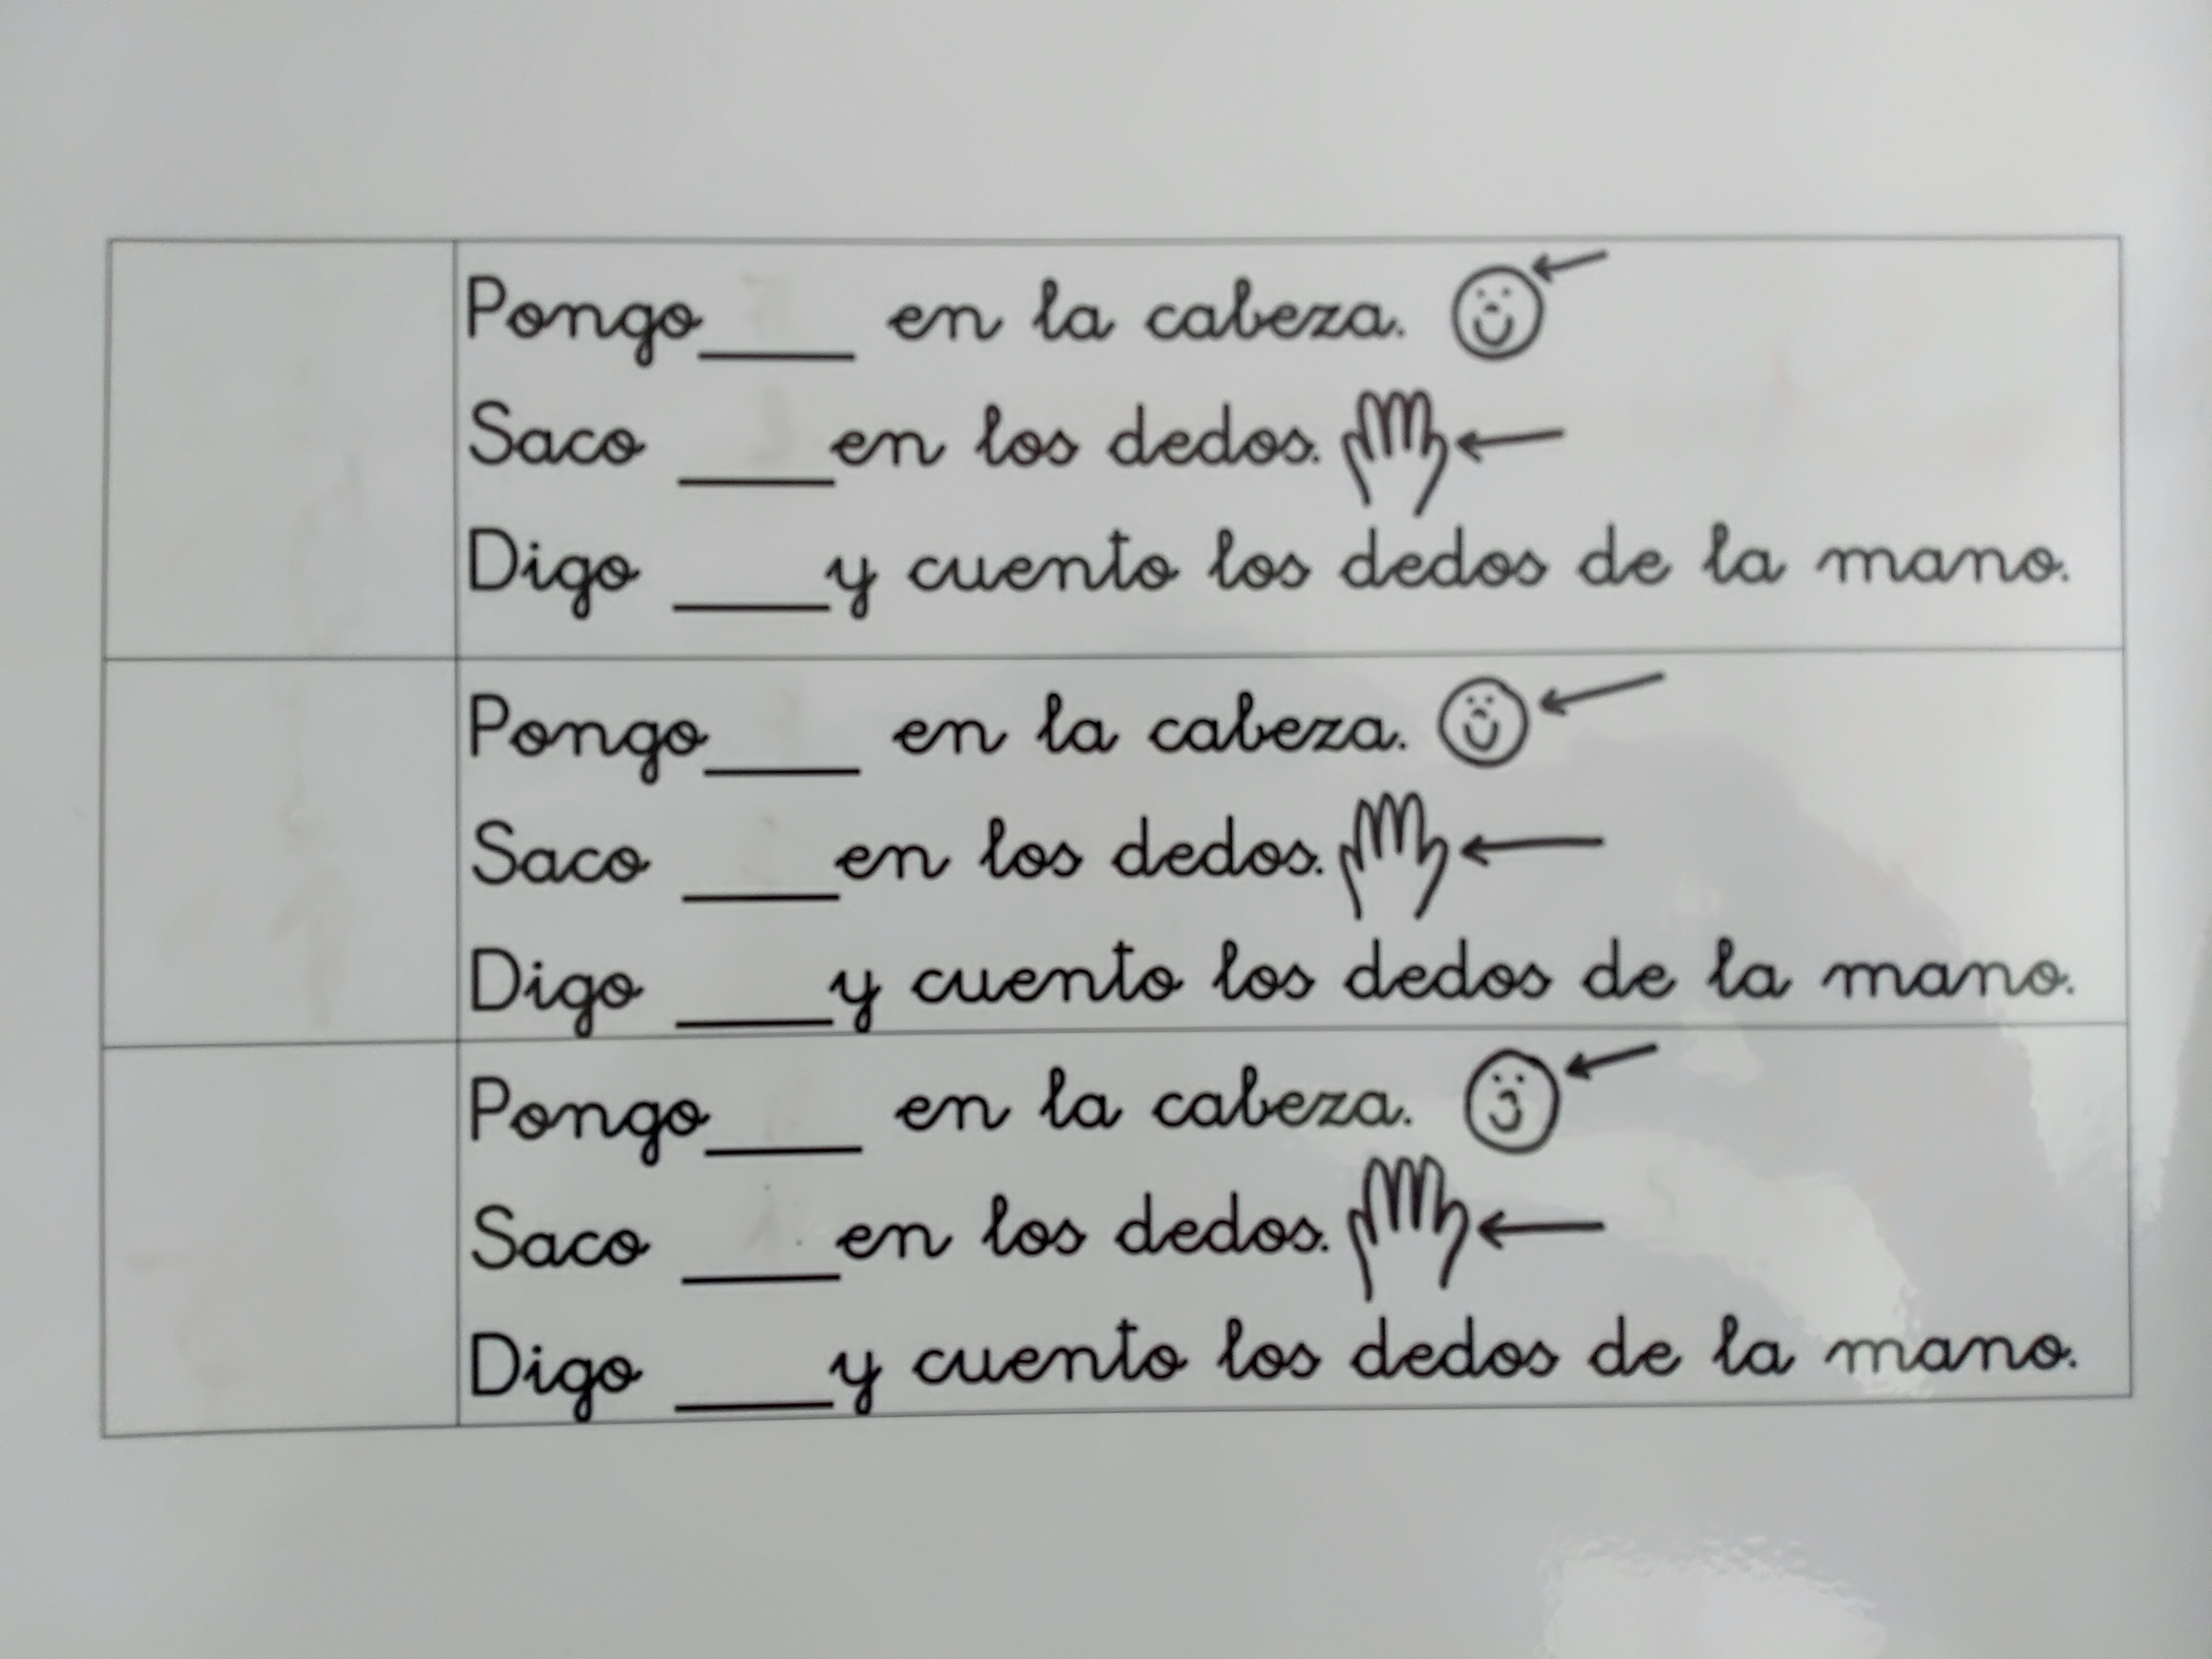 Pongo____ en la cabeza.
Saco ____en los dedos.
Digo ____y cuento los dedos de la mano.
Pongo____ en la cabeza.
Saco ____en los dedos.
Digo ____y cuento los dedos de la mano.
Pongo____ en la cabeza.
Saco ____en los dedos.
Digo ____y cuento los dedos de la mano.